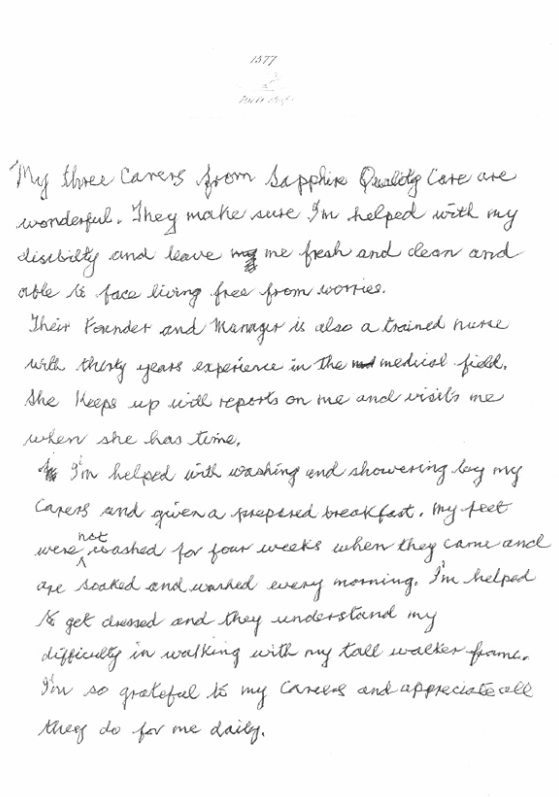 1577
My three Carers from Sapphire Quality Care are
wonderful. They make sure I'm helped with my
disibilty and leave me fresh and clean and
able to face living free from worries.
Their Founder and Manager is also a trained nurse
with thirty years experience in the medical field.
She keeps up with reports on me and visits me
when she has time.
I'm helped with washing and showering by my
Carers and given a prepared breakfast. My feet
were not washed for four weeks when they came and
are soaked and washed every morning. I'm helped
to get dressed and they understand my
difficulty in walking with my tall walker frame.
I'm so grateful to my Carers and appreciate all
they do for me daily.